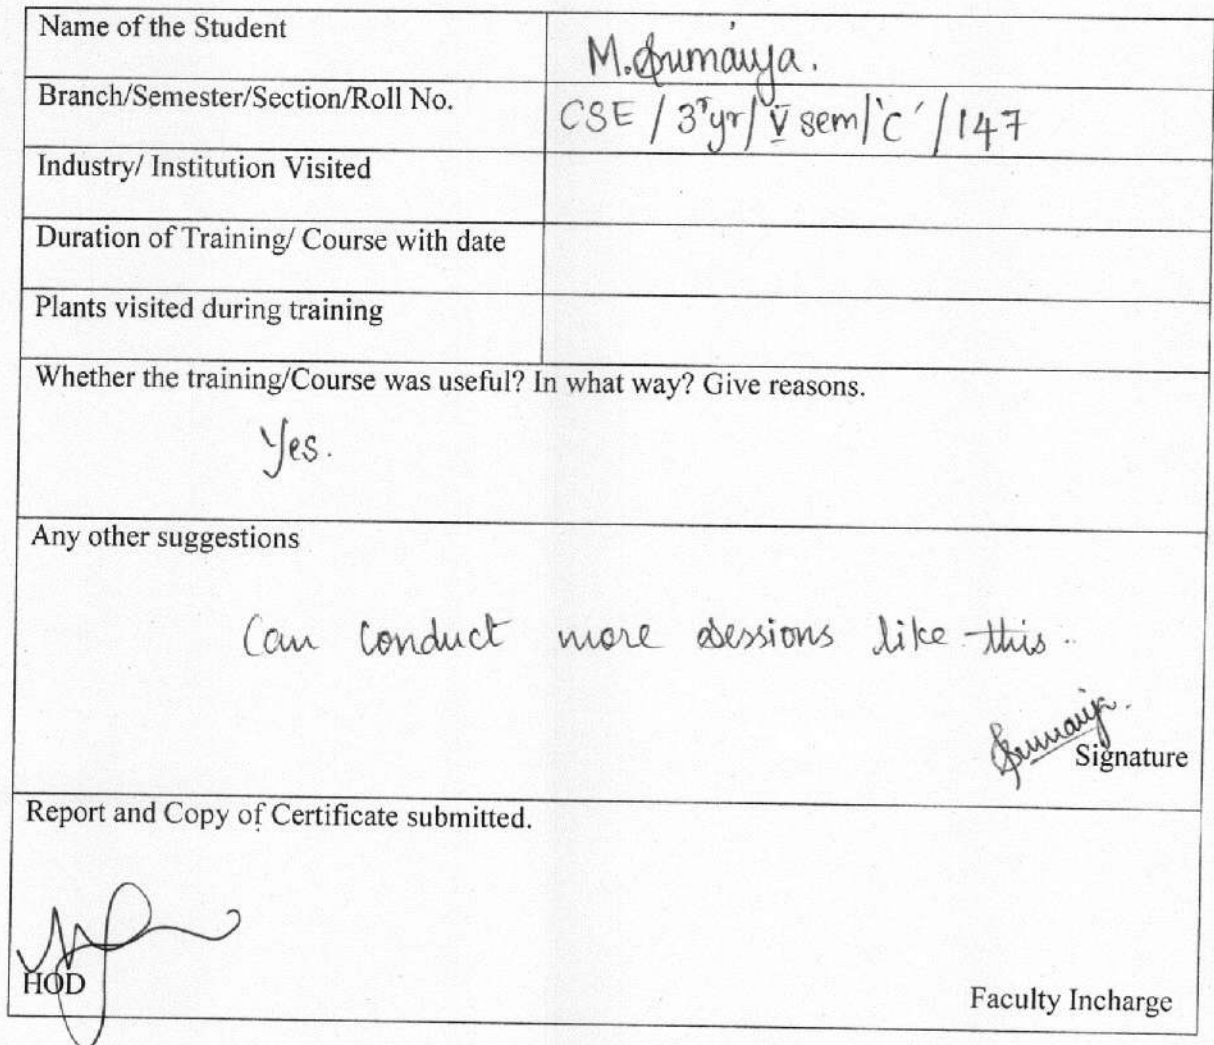 Name of the Student M.Sumaiya.
Branch/Semester/Section/Roll No. CSE / 3ʳyr/ V sem/'C' /147
Industry/ Institution Visited
Duration of Training/ Course with date
Plants visited during training
Whether the training/Course was useful? In what way? Give reasons.
Yes.
Any other suggestions
Can conduct more sessions like this..
Sumaiya.
Signature
Report and Copy of Certificate submitted.
HOD
Faculty Incharge